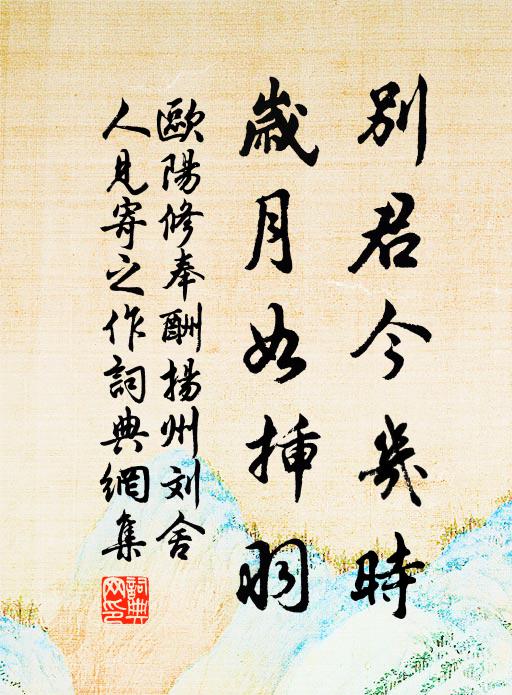 別君今幾時
歲月如揷羽
歐陽修奉酬揚州刘舍
人見寄之作詞典網集
詞典
网印